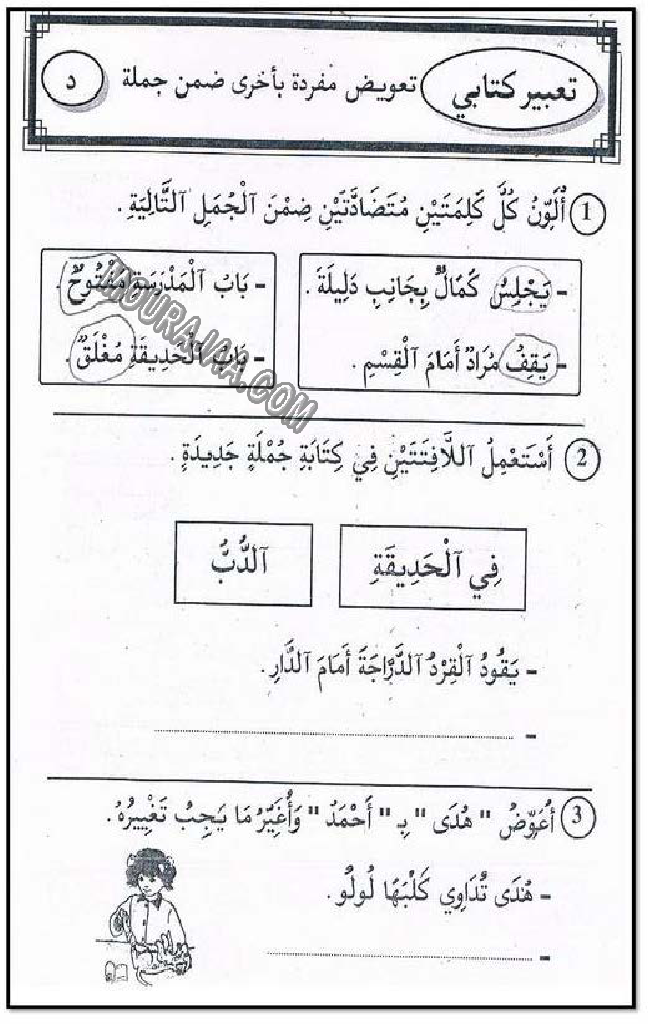 تعبير كتابي
تعويض مفردة بأخرى ضمن جملة
د
1 أُلَوِّنُ كُلَّ كَلِمَتَيْنِ مُتَضَادَّتَيْنِ ضِمْنَ ٱلْجُمَلِ ٱلتَّالِيَةِ .
- يَجْلِسُ كَمَالٌ بِجَانِبِ دَلِيلَةَ .
- يَقِفُ مُرَادٌ أَمَامَ ٱلْقِسْمِ .
- بَابُ ٱلْمَدْرَسَةِ مَفْتُوحٌ .
- بَابُ ٱلْحَدِيقَةِ مُغْلَقٌ .
MOURAJAA.COM
2 أَسْتَعْمِلُ ٱللَّافِتَتَيْنِ فِي كِتَابَةِ جُمْلَةٍ جَدِيدَةٍ .
فِي ٱلْحَدِيقَةِ
ٱلدُّبُّ
- يَقُودُ ٱلْقِرْدُ ٱلدَّرَّاجَةَ أَمَامَ ٱلدَّارِ .
- ........................................
3 أُعَوِّضُ " هُدَى " بِـ " أَحْمَدُ " وَأُغَيِّرُ مَا يَجِبُ تَغْيِيرُهُ .
- هُدَى تُدَاوِي كَلْبَهَا لُولُو .
- ........................................